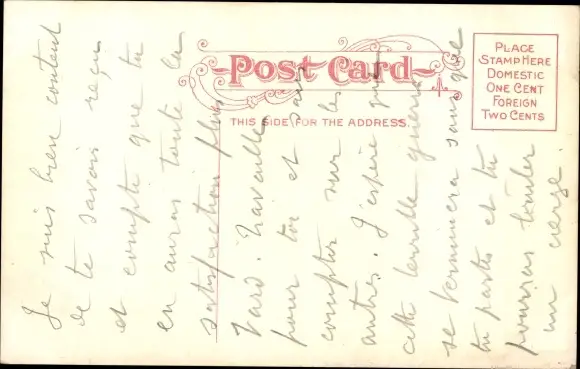 POST CARD
THIS SIDE FOR THE ADDRESS.
PLACE
STAMP HERE
DOMESTIC
ONE CENT
FOREIGN
TWO CENTS
Je suis bien content
de te savoir reçu
et compte que tu
en auras toute la
satisfaction plus
tard. Travaille
pour toi et sans
compter sur les
autres. J'espère que
cette terrible guerre
se terminera sans que
tu partes et tu
pourras brûler
un cierge.